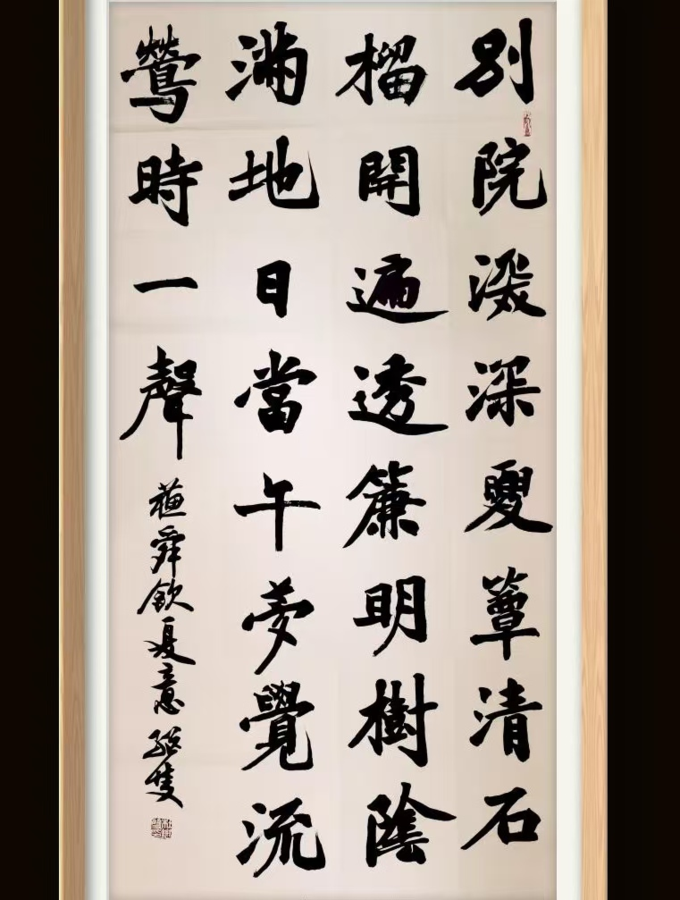 別院㴱深夏簟清石
榴開遍透簾明樹陰
滿地日當午夢覺流
鶯時一聲
蘇舜欽夏意